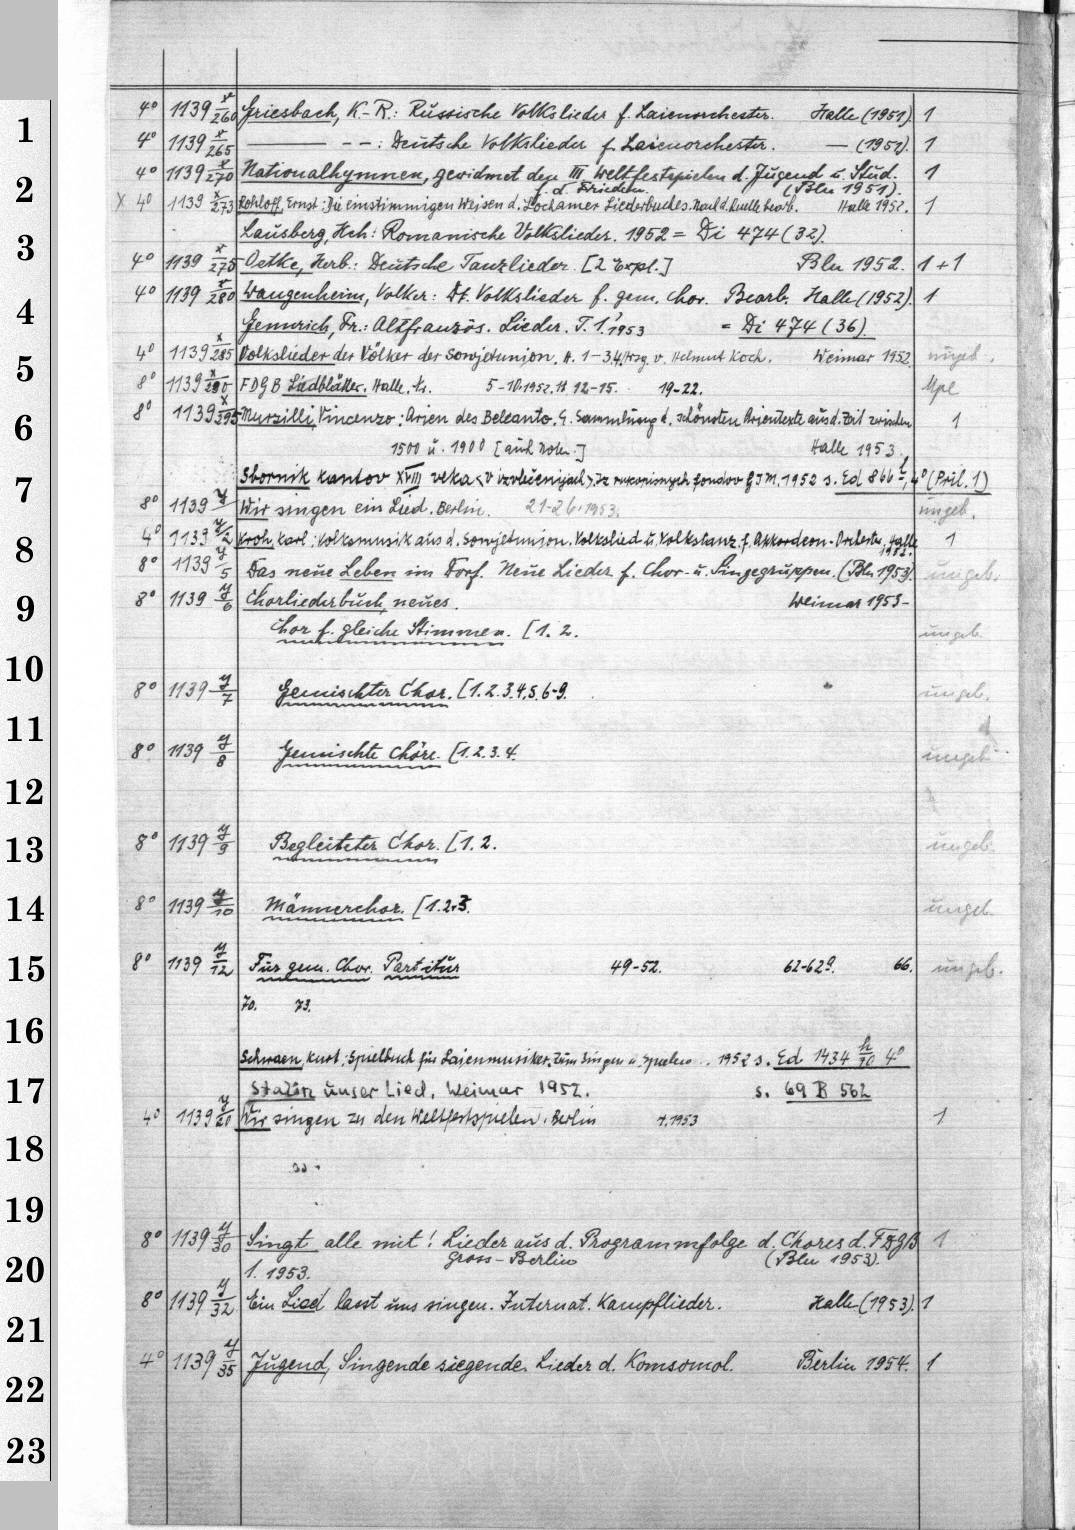 4° 1139 x/260 Griesbach, K.-R.: Russische Volkslieder f. Laienorchester. Halle (1951) 1
1
4° 1139 x/265 —— – –: Deutsche Volkslieder f. Laienorchester. — (1951). 1
4° 1139 x/270 Nationalhymnen, gewidmet den III. Weltfestspielen d. Jugend u. Stud. 1
2
f. d. Frieden. (Bln 1951).
X 4° 1139 x/273 Rohloff, Ernst: Die einstimmigen Weisen d. Lochamer Liederbuches. Nach d. Quelle bearb. Halle 1952. 1
Lausberg, Hch: Romanische Volkslieder. 1952 = Di 474 (32).
3
4° 1139 x/275 Oetke, Herb.: Deutsche Tanzlieder. [2 Expl.] Bln 1952. 1+1
4° 1139 x/280 Wangenheim, Volker: Dt. Volkslieder f. gem. Chor. Bearb. Halle (1952). 1
4
Gennrich, Fr.: Altfranzös. Lieder. T. 1. 1953 = Di 474 (36).
4° 1139 x/285 Volkslieder der Völker der Sowjetunion. H. 1-3.4. Hrsg. v. Helmut Koch. Weimar 1952 ungeb.
5
8° 1139 x/290 FDGB Liedblätter. Halle. Nr. 5-10.1952. H 12-15. 19-22. Mpe
8° 1139 x/295 Murzilli, Vincenzo: Arien des Belcanto. E. Sammlung d. schönsten Arientexte aus d. Zeit zwischen 1
6
1500 u. 1900 [auch Noten.] Halle 1953.
Sbornik kantov XVIII veka (v izvlečenijach) Iz rukopisnych fondov GIM. 1952 s. Ed 866 f, 4° (Pril. 1)
7
8° 1139 y Wir singen ein Lied. Berlin. 21-26.1953. ungeb.
4° 1139 y/2 Kroh, Karl: Volksmusik aus d. Sowjetunion. Volkslied u. Volkstanz f. Akkordeon-Orchester. Halle 1952. 1
8
8° 1139 y/5 Das neue Leben im Dorf. Neue Lieder f. Chor- u. Singegruppen. (Bln 1953). ungeb.
8° 1139 y/6 Chorliederbuch, neues. Weimar 1953-
9
Chor f. gleiche Stimmen. [1. 2. ungeb.
10
8° 1139 y/7 Gemischter Chor. [1.2.3.4.5.6-9. ungeb.
11
8° 1139 y/8 Gemischte Chöre. [1.2.3.4. ungeb.
12
8° 1139 y/9 Begleiteter Chor. [1. 2. ungeb.
13
8° 1139 y/10 Männerchor. [1.2.3. ungeb.
14
8° 1139 y/12 Für gem. Chor. Partitur 49-52. 62-629. 66. ungeb.
15
70. 73.
16
Schwaen, Kurt: Spielbuch für Laienmusiker. Zum Singen u. Spielen .. 1952 s. Ed 1434 h/90 4°
Stalin unser Lied. Weimar 1952. s. 69 B 562
17
4° 1139 y/20 Wir singen zu den Weltfestspielen. Berlin 1.1953 1
18
19
8° 1139 y/30 Singt alle mit! Lieder aus d. Programmfolge d. Chores d. FDGB 1
Gross-Berlin (Bln 1953).
20
1. 1953.
8° 1139 y/32 Ein Lied lasst uns singen. Internat. Kampflieder. Halle (1953). 1
21
4° 1139 y/35 Jugend, Singende siegende. Lieder d. Komsomol. Berlin 1954. 1
22
23